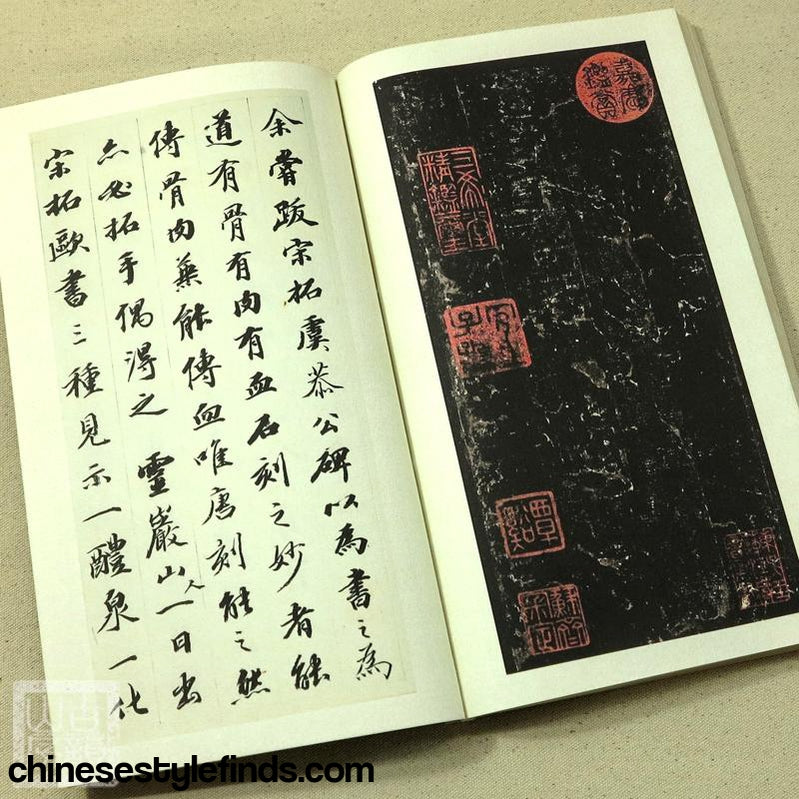 嘉慶鑑賞
三希堂精鑑璽
宜子孫
覃谿
余嘗跋宋拓虞恭公碑以為書之為
道有骨有肉有血石刻之妙者能
傳骨肉無能傳血唯唐刻能之然
亦必拓手偶得之 靈巖山人一日出
宋拓歐書三種見示一醴泉一化
chinesestylefinds.com